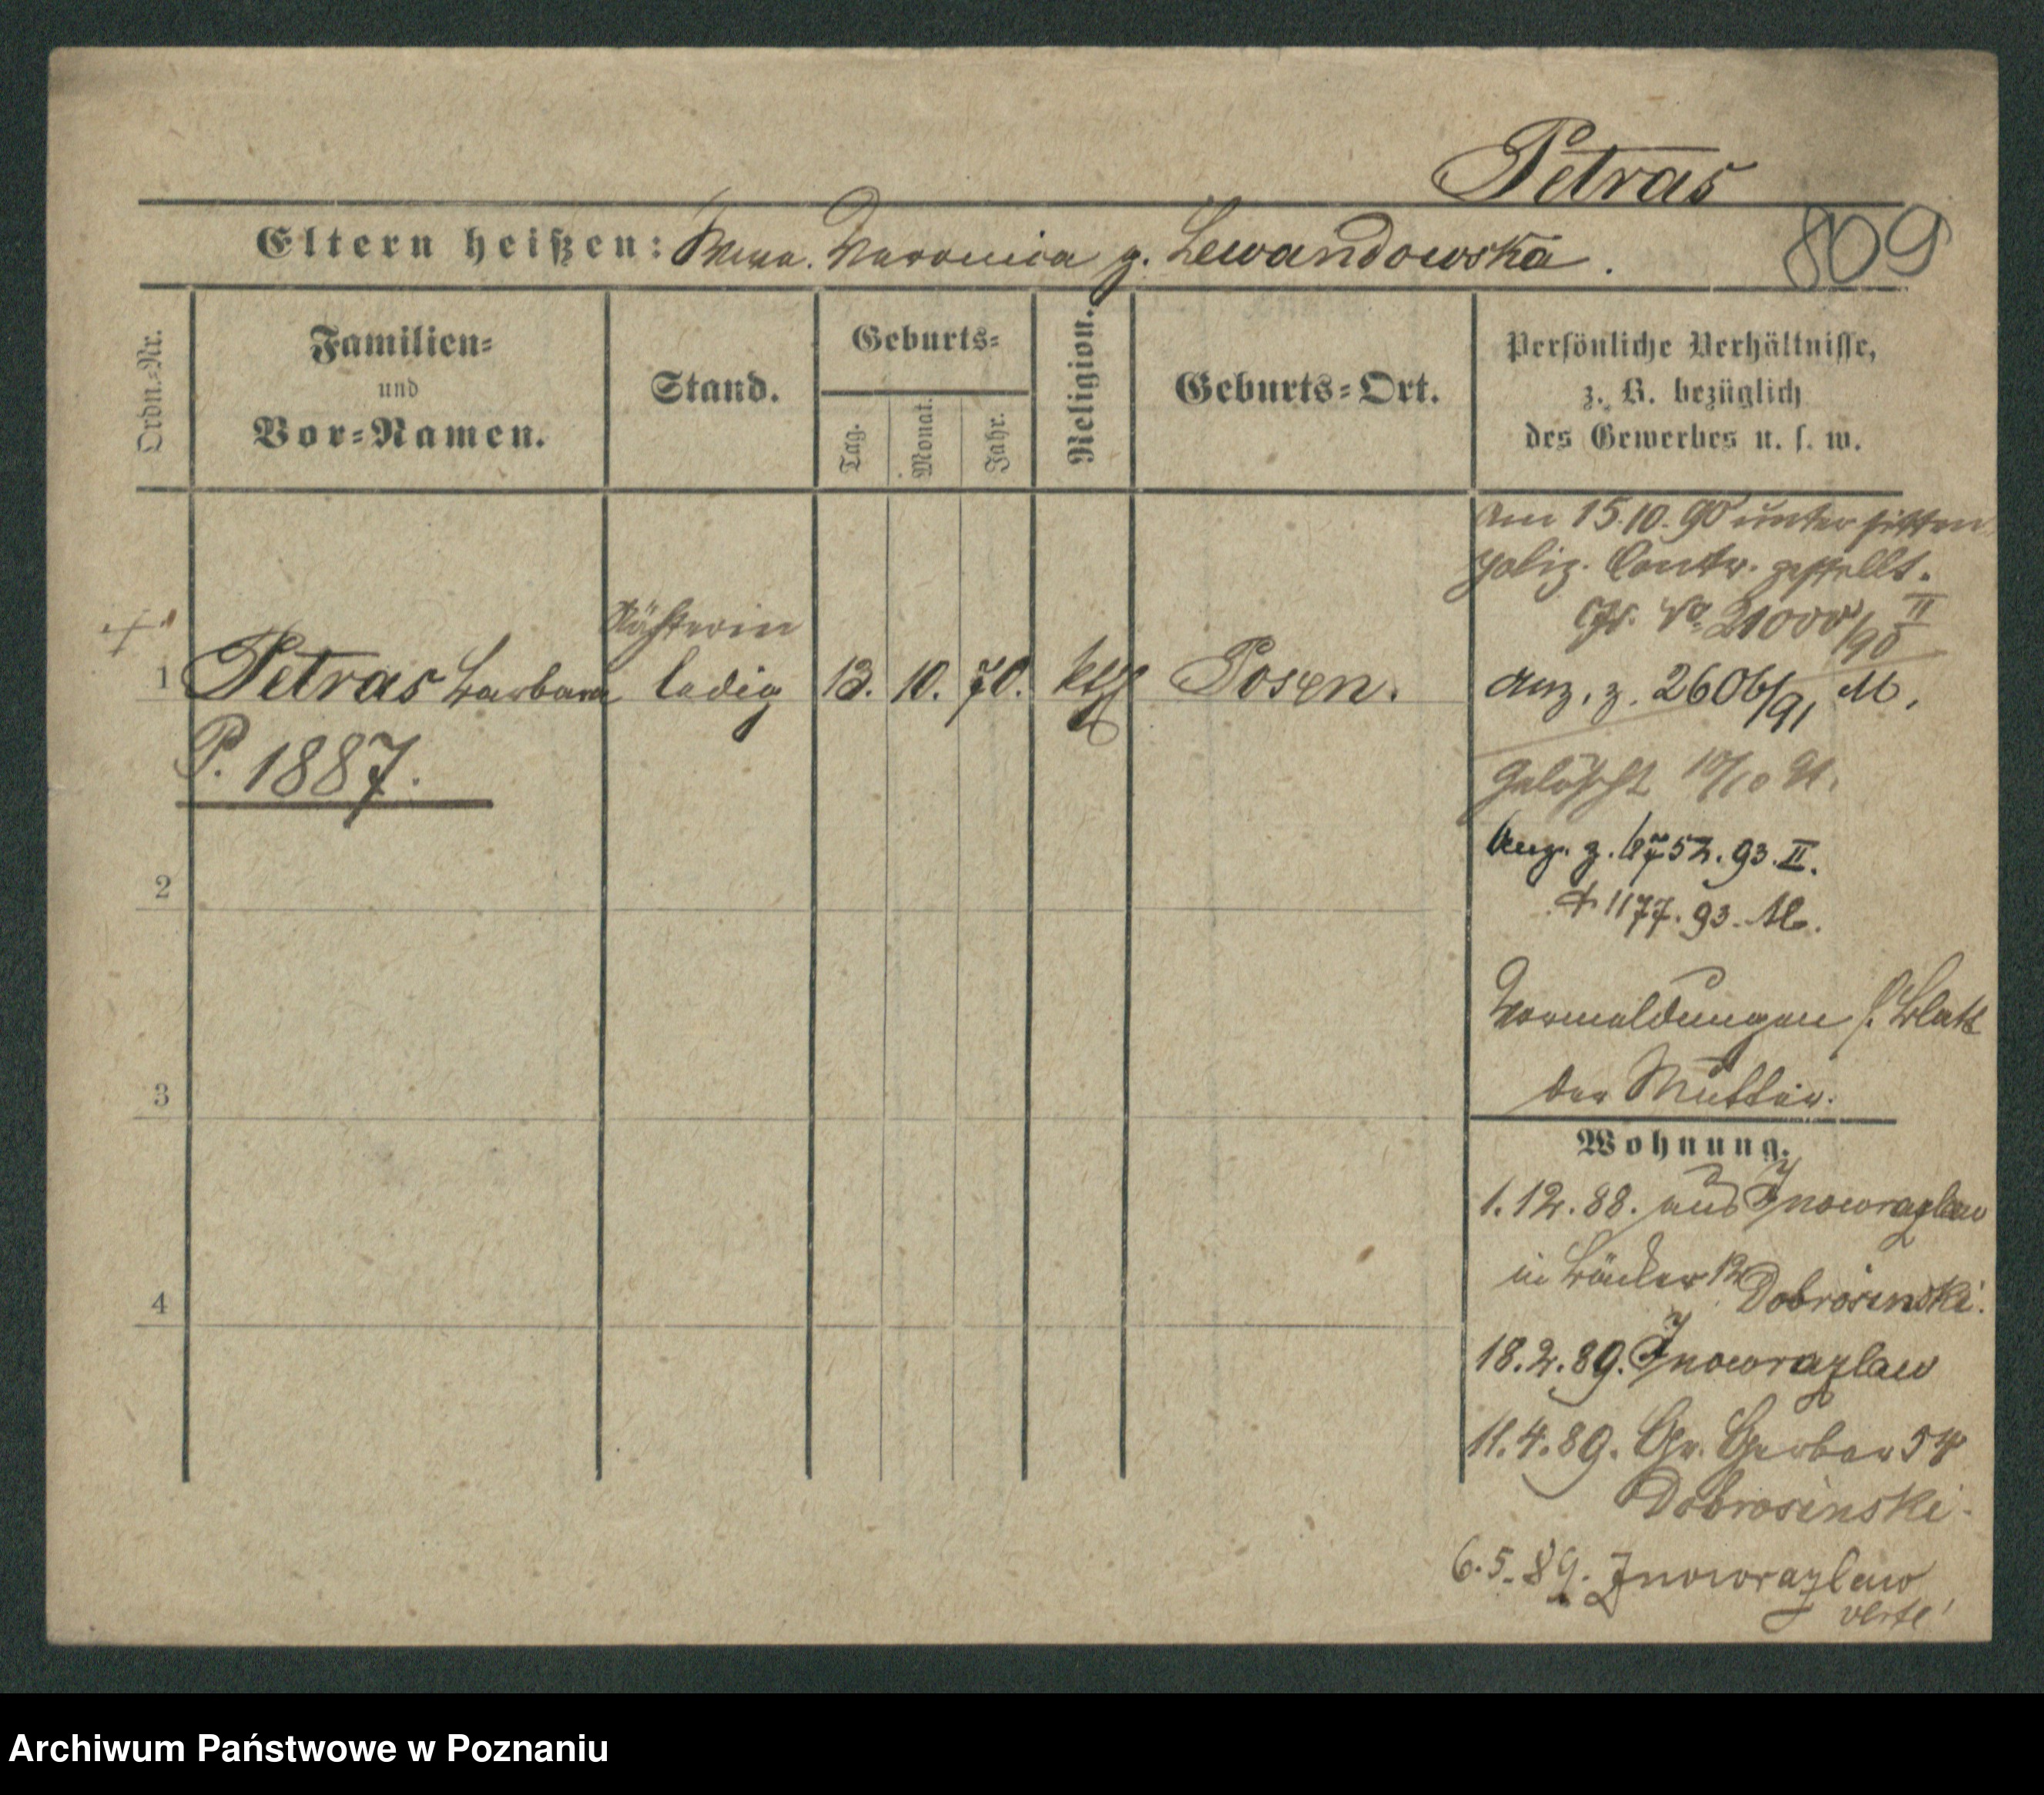 Petras
809
Eltern heißen: Wwe. Veronica g. Lewandowska.
Ordn.-Nr.
Familien-
und
Vor-Namen.
Stand.
Geburts-
Tag.
Monat.
Jahr.
Religion.
Geburts-Ort.
Persönliche Verhältnisse,
z. B. bezüglich
des Gewerbes u. s. w.
Am 15.10.90 unter sitten
poliz. Contr. gestellt.
No 21000/90 II
Nähterin
1 Petras Barbara ledig 13. 10. 70. kth Posen.
P. 1887.
Anz. z. 2606/91 M.
Gelöscht 10/10 91.
Anz. z. 6752. 93. II.
1177. 93. M.
Vormeldungen s. Blatt
der Mutter.
2
3
4
Wohnung.
1.12.88. aus Inowrazlaw
in Bäcker Dobrosinski.
18.2.89. Inowrazlaw
11.4.89. Gr. Gerber 54
Dobrosinski.
6.5.89. Inowrazlaw
verte!
Archiwum Państwowe w Poznaniu